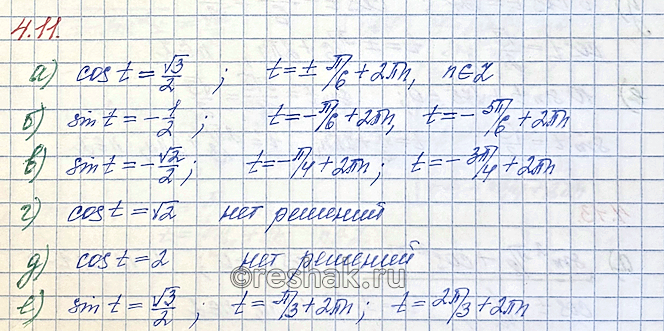 4.11.
а) cos t = √3/2 ; t = ± π/6 + 2πn, n∈Z
б) sin t = -1/2 ; t = -π/6 + 2πn, t = -5π/6 + 2πn
в) sin t = -√2/2 ; t = -π/4 + 2πn ; t = -3π/4 + 2πn
г) cos t = √2 нет решений
д) cos t = 2 нет решений
©reshak.ru
е) sin t = √3/2 ; t = π/3 + 2πn ; t = 2π/3 + 2πn